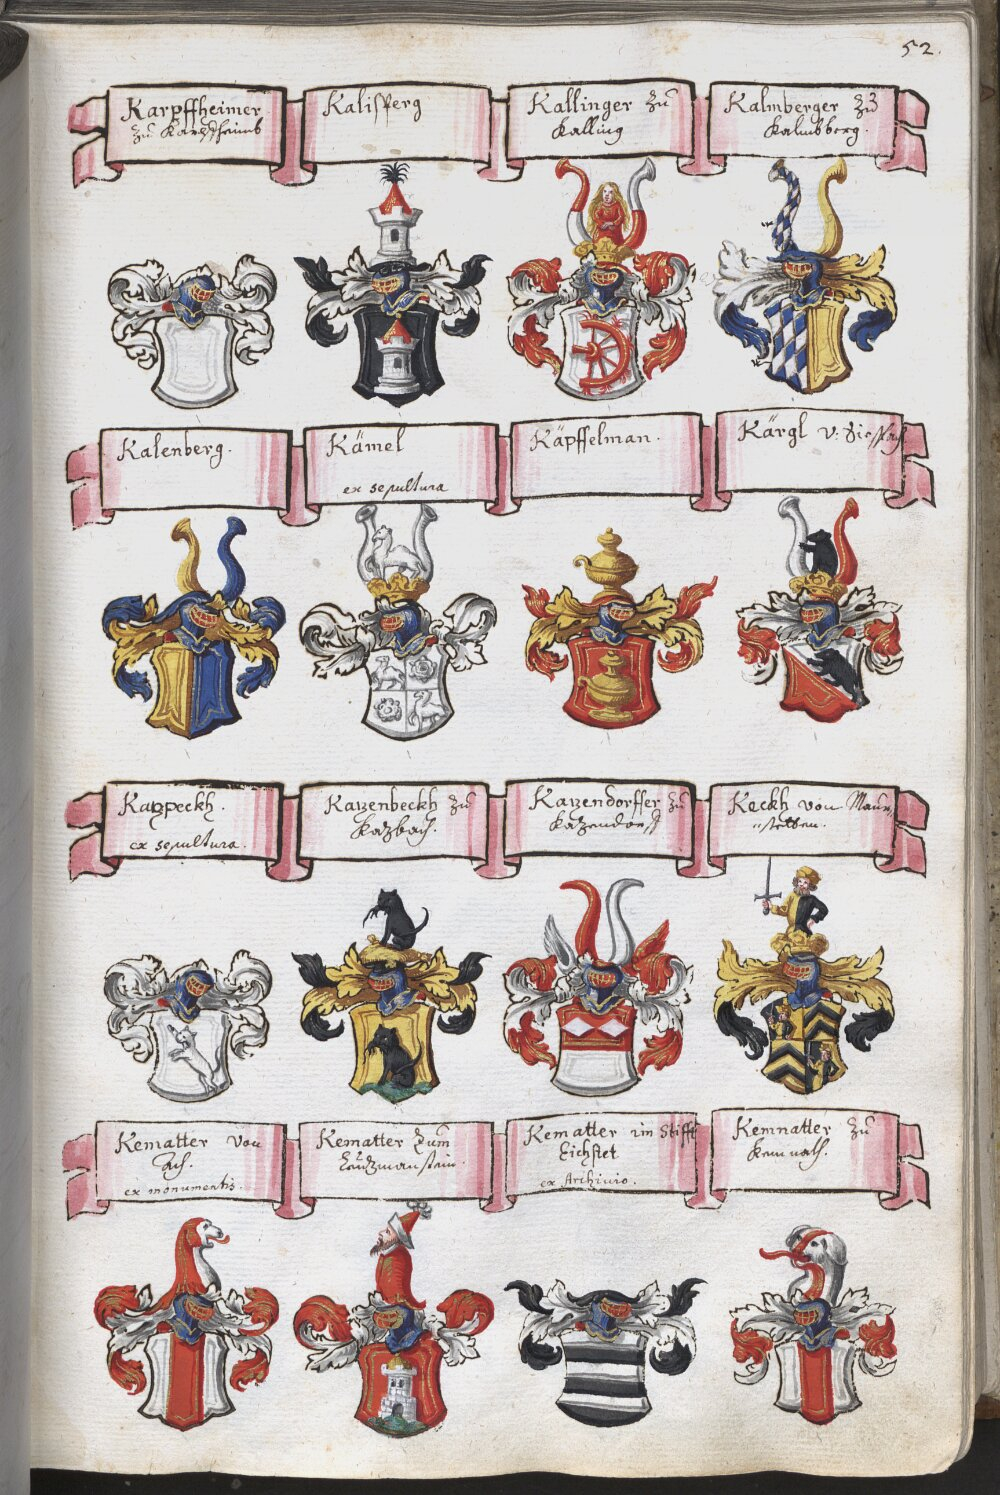 52.
Karpffheimer
zu Karpfheimb
Kalisperg
Kallinger zu
Kalling
Kalmberger zu
Kalmberg.
Kalenberg.
Kämel
ex sepultura
Käpffelman.
Kärgl v:
Kazpeckh.
ex sepultura.
Kazenbeckh zu
Kazbach.
Kazendorffer zu
Kazendorff
Keckh von Maur„
„stetten.
Kematter von
Ach.
ex monumentis.
Kematter zum
Kematter im Stifft
Eichstet
ex Archivio.
Kemnatter zu
Kemnath.